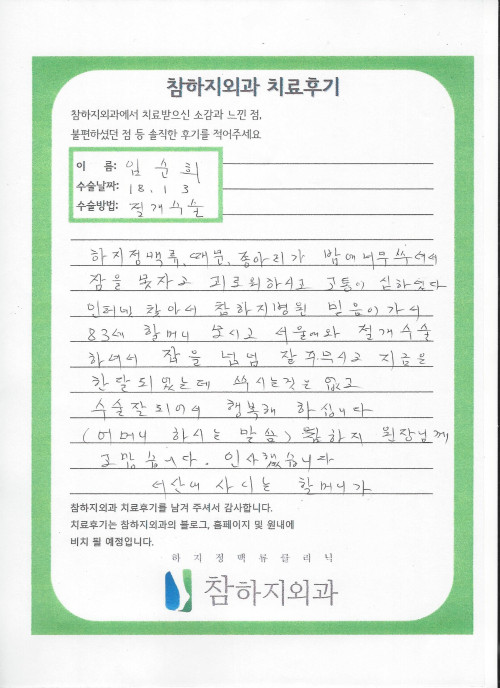 참하지외과 치료후기
참하지외과에서 치료받으신 소감과 느낀 점,
불편하셨던 점 등 솔직한 후기를 적어주세요
이 름: 임순희
수술날짜: 18. 1 3
수술방법: 절개수술
하지정맥류, 때문, 종아리가 밤에 너무 쑤셔서
잠을 못자고 괴로워하시고 고통이 심하였다
인터넷 찾아서 참하지병원 믿음이 가서
83세 할머니 모시고 서울에와 절개수술
하여서 잠을 넘 잘 주무시고 지금은
한달 되었는데 쑤시는것은 없고
수술잘되어서 행복해 하십니다
(어머니 하시는 말씀) 참하지 원장님께
고맙습니다. 인사했습니다
서산에 사시는 할머니가
참하지외과 치료후기를 남겨 주셔서 감사합니다.
치료후기는 참하지외과의 블로그, 홈페이지 및 원내에
비치 될 예정입니다.
하지정맥류클리닉
참하지외과